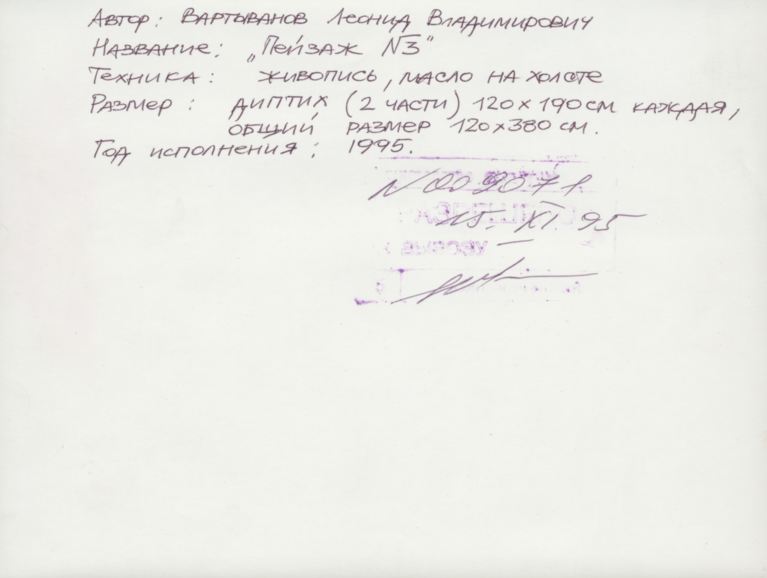 Автор: Вартыванов Леонид Владимирович
Название: „Пейзаж №3"
Техника: живопись, масло на холсте
Размер: диптих (2 части) 120х190см каждая,
общий размер 120х380 см.
Год исполнения: 1995.
N 009071
15. XI. 95